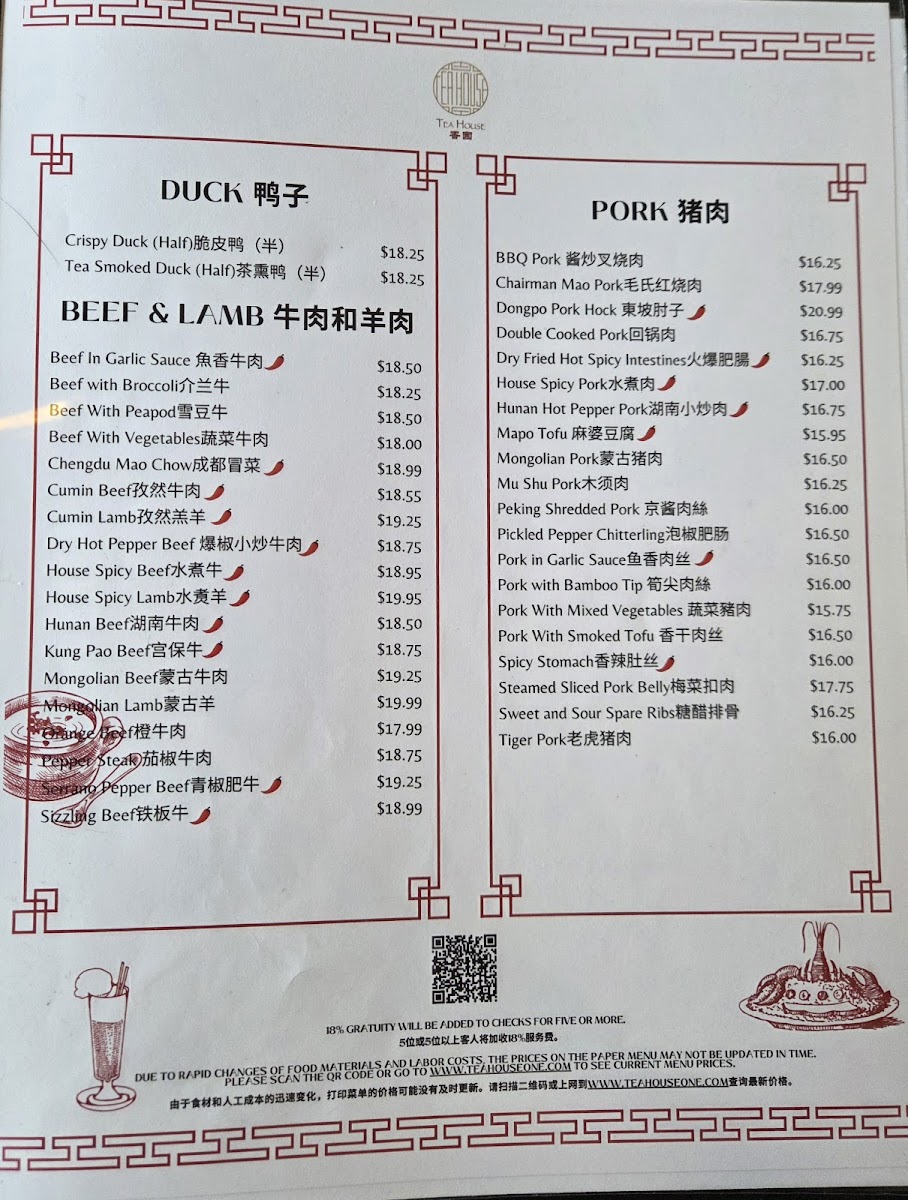 TEA HOUSE
TEA HOUSE
香園
DUCK 鸭子
Crispy Duck (Half)脆皮鸭（半） $18.25
Tea Smoked Duck (Half)茶熏鸭（半） $18.25
BEEF & LAMB 牛肉和羊肉
Beef In Garlic Sauce 魚香牛肉 $18.50
Beef with Broccoli介兰牛 $18.25
Beef With Peapod雪豆牛 $18.50
Beef With Vegetables蔬菜牛肉 $18.00
Chengdu Mao Chow成都冒菜 $18.99
Cumin Beef孜然牛肉 $18.55
Cumin Lamb孜然羔羊 $19.25
Dry Hot Pepper Beef 爆椒小炒牛肉 $18.75
House Spicy Beef水煮牛 $18.95
House Spicy Lamb水煑羊 $19.95
Hunan Beef湖南牛肉 $18.50
Kung Pao Beef宫保牛 $18.75
Mongolian Beef蒙古牛肉 $19.25
Mongolian Lamb蒙古羊 $19.99
Orange Beef橙牛肉 $17.99
Pepper Steak 茄椒牛肉 $18.75
Serrano Pepper Beef青椒肥牛 $19.25
Sizzling Beef铁板牛 $18.99
PORK 猪肉
BBQ Pork 酱炒叉烧肉 $16.25
Chairman Mao Pork毛氏红烧肉 $17.99
Dongpo Pork Hock 東坡肘子 $20.99
Double Cooked Pork回锅肉 $16.75
Dry Fried Hot Spicy Intestines火爆肥腸 $16.25
House Spicy Pork水煮肉 $17.00
Hunan Hot Pepper Pork湖南小炒肉 $16.75
Mapo Tofu 麻婆豆腐 $15.95
Mongolian Pork蒙古猪肉 $16.50
Mu Shu Pork木须肉 $16.25
Peking Shredded Pork 京酱肉絲 $16.00
Pickled Pepper Chitterling泡椒肥肠 $16.50
Pork in Garlic Sauce鱼香肉丝 $16.50
Pork with Bamboo Tip 筍尖肉絲 $16.00
Pork With Mixed Vegetables 蔬菜豬肉 $15.75
Pork With Smoked Tofu 香干肉丝 $16.50
Spicy Stomach香辣肚丝 $16.00
Steamed Sliced Pork Belly梅菜扣肉 $17.75
Sweet and Sour Spare Ribs糖醋排骨 $16.25
Tiger Pork老虎猪肉 $16.00
18% GRATUITY WILL BE ADDED TO CHECKS FOR FIVE OR MORE.
5位或5位以上客人将加收18%服务费。
DUE TO RAPID CHANGES OF FOOD MATERIALS AND LABOR COSTS, THE PRICES ON THE PAPER MENU MAY NOT BE UPDATED IN TIME.
PLEASE SCAN THE QR CODE OR GO TO WWW.TEAHOUSEONE.COM TO SEE CURRENT MENU PRICES.
由于食材和人工成本的迅速变化，打印菜单的价格可能没有及时更新。请扫描二维码或上网到WWW.TEAHOUSEONE.COM查询最新价格。